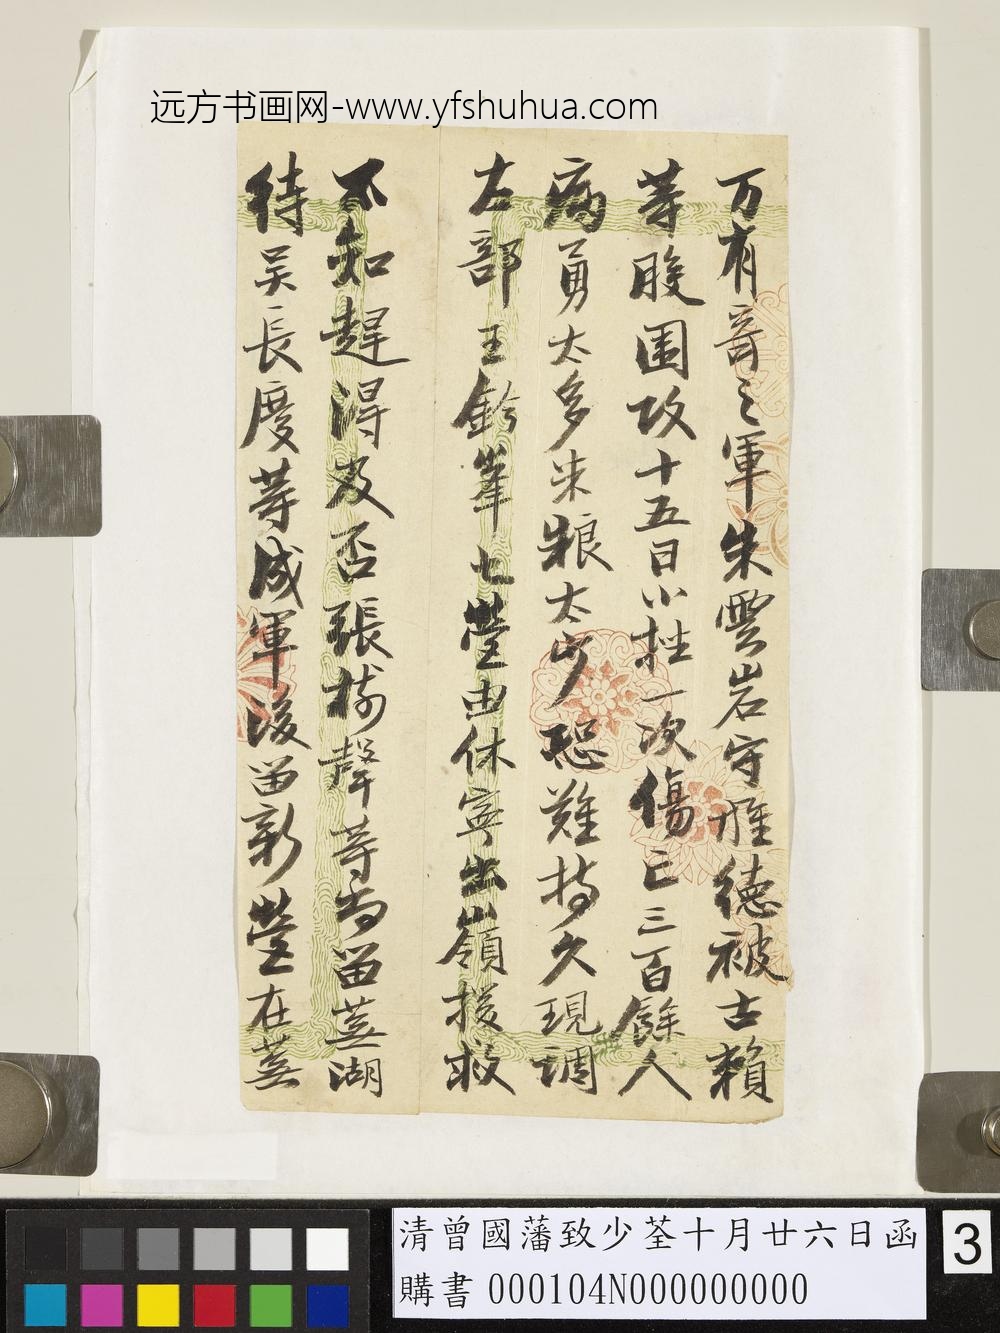 远方书画网-www.yfshuhua.com
万有奇之軍朱雲岩守旌德被古賴
等股圍攻十五日小挫一次傷亡三百餘人
病勇太多米粮太少恐難持久現調
大部王鈐峯七營由休寧出嶺援救
不知趕得及否張樹聲等尚留蕪湖
待吴長慶等成軍後留新營在蕪
清曾國藩致少荃十月廿六日函
購書 000104N000000000
3